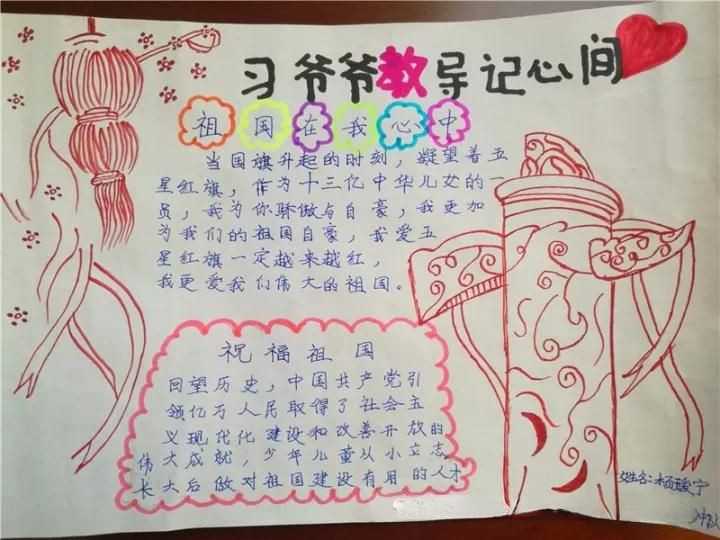 习爷爷教导记心间
祖国在我心中
当国旗升起的时刻，凝望着五
星红旗，作为十三亿中华儿女的一
员，我为你骄傲与自豪，我更加
为我们的祖国自豪，我爱五
星红旗一定越来越红，
我更爱我们伟大的祖国。
祝福祖国
回望历史，中国共产党引
领亿万人民取得了社会主
义现代化建设和改善开放的
伟大成就，少年儿童从小立志
长大后做对祖国建设有用的人才
姓名:杨